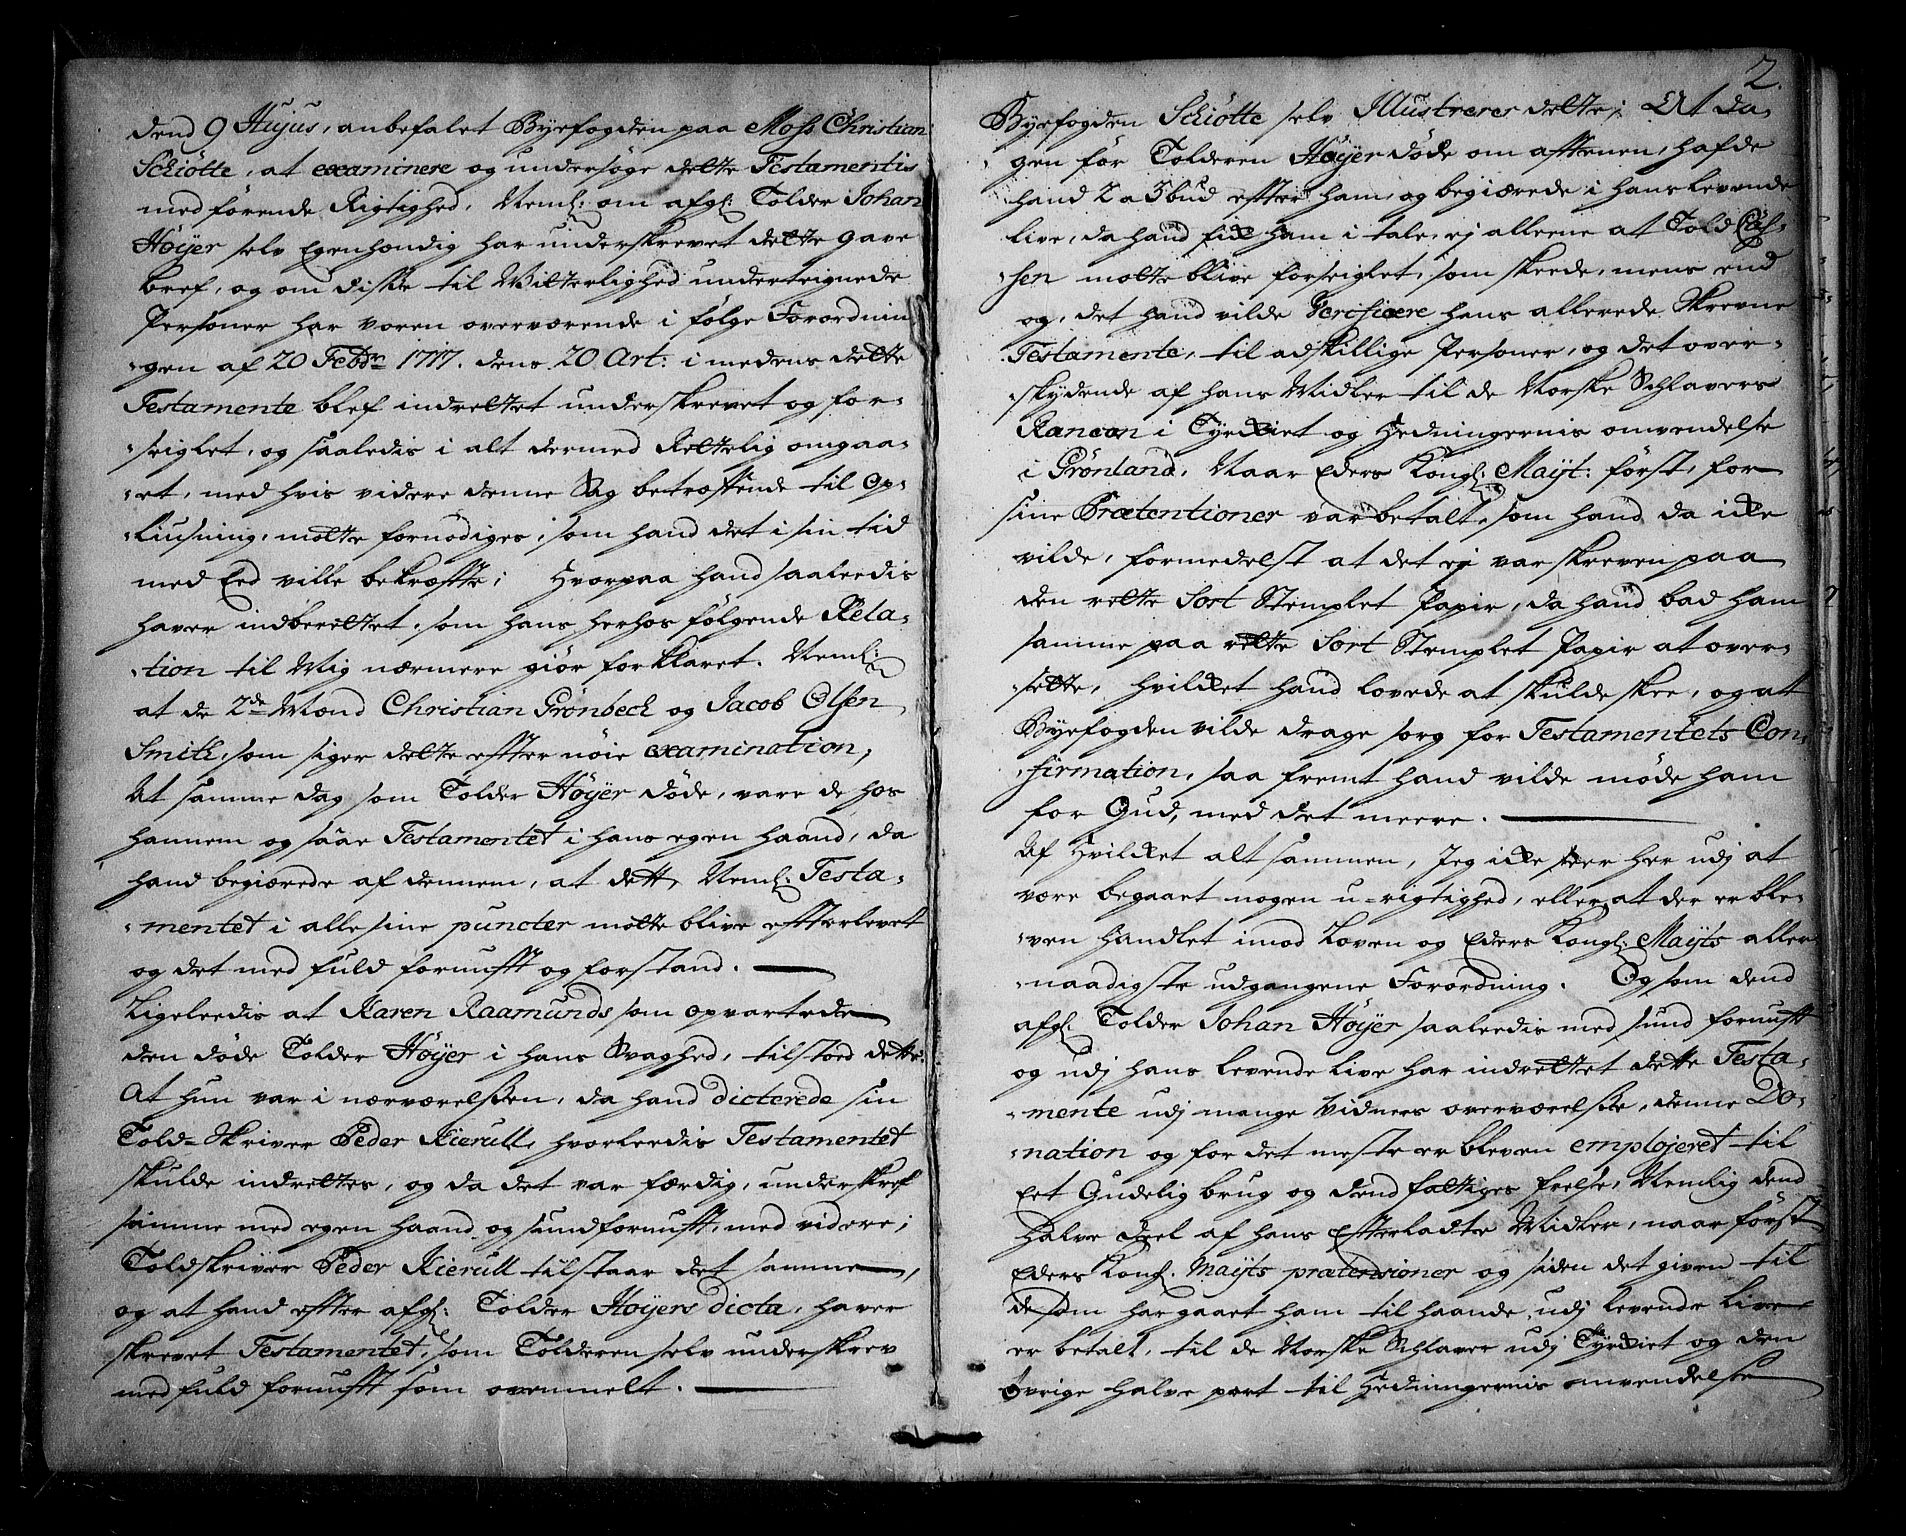 dend 9 Hujus, anbefalet Byefogden paa Moss Christian
Schiötte, at examinere og undersöge dette Testamentis
medförende Rigtighed, Neml: om afgl: Tolder Johan
Höyer selv Egenhændig har underskrevet dette Gave
bref, og om diske til Vitterlighed underteignede
Personer har voren overværende i følge Forordnin
-gen af 20 Febr 1717. dens 20 Art: i medens dette
Testamente blef indrettet underskrevet og for-
-seiglet, og saaledis i alt dermed Rettelig omgaa-
-et, med hvis videre denne Sag betræffende til Op-
-liusning, motte fornödiges, som hand det i sin tid
med Eed ville bekræffte; Hvorpaa hand saaleedis
haver indberettet, som hans herhos fölgende Rela-
-tion til Mig nærmere giör forklaret. Neml:
at de 2de Mænd Christian Grönbech og Jacob Olsen
Smith, som siger dette effter nöie examination,
At samme dag som Tolder Höyer döde, vare de hos
hannem og saae Testamentet i hans egen haand, da
hand begiærede af dennem, at dett, Neml: Testa-
-mentet i alle sine puncter motte blive effterlevet
og det med fuld fornufft og forstand.
Ligeleedis at Karen Raamunds som opvartede
den döde Tolder Höyer i hans Svaghed, tilstod dette:
At hun var i nærværelssen, da hand dicterede sin
Told-Skriver Peder Kierull, hvorleedis Testamentet
skulde indrettes, og da det var færdig, underskref
samme med egen haand og sund fornufft, med videre;
Toldskriver Peder Kierull tilstaar det samme,
og at hand effter afgl: Tolder Höyers dicta, haver
skrevet Testamentet, som Tolderen selv underskrev
med fuld fornufft som ovenmelt.
2.
Byefogden Schiötte selv Illustrerer dette; At da-
gen för Tolderen Höyer döde om afftenen, hafde
hand 2 a 3 bud effter ham, og begiærede i hans levende
live, da hand fik ham i tale, ej alleene at Told Cas-
-sen motte blive forseiglet, som skeede, mens end
og, det hand vilde Verificere hans allerede skrevne
Testamente, til adskillige Personer, og det over-
-skydende af hans Midler til de Norske Schlavers
Rancon i Tyrkiet og Hedningernis omvendelse
i Grönland, Naar Eders Kongl: Mayt: först, for
sine Prætentioner var betalt, som hand da ikke
vilde, formedelst at det ej var skreven paa
den rette Sort Stemplet Papir, da hand bad ham
samme paa rette Sort Stemplet Papir at over-
-sette, hvilket hand lovede at skulde skee, og at
Byefogden vilde drage sorg for Testamentets Con-
-firmation, saa fremt hand vilde möde ham
for Gud, med det meere.
Af Hvilket alt sammen, Jeg ikke seer her udj at
være begaaet nogen u-rigtighed, eller at der er ble-
-ven handlet imod Loven og Eders Kongl: Mayts aller
-naadigste udgangene Forordning. Og som dend
afgl: Tolder Johan Höyer saaleedis med sund fornufft
og udj hans levende live har indrettet dette Testa-
-mente udj mange Vidners overværelsse, denne Do-
-nation og for det meste er bleven employeret til
Eet Gudelig brug og dend fattiges frelse, Nemlig dend
Halve deel af hans Effterladte Midler, naar först
Eders Kongl. Mayts prætensioner og siden det given til
de som har gaaet ham til haande, udj levende live
er betalt, til de Norske Schlaver udj Tyrkiet og den
Övrige halve part til Hedningernis omvendelse